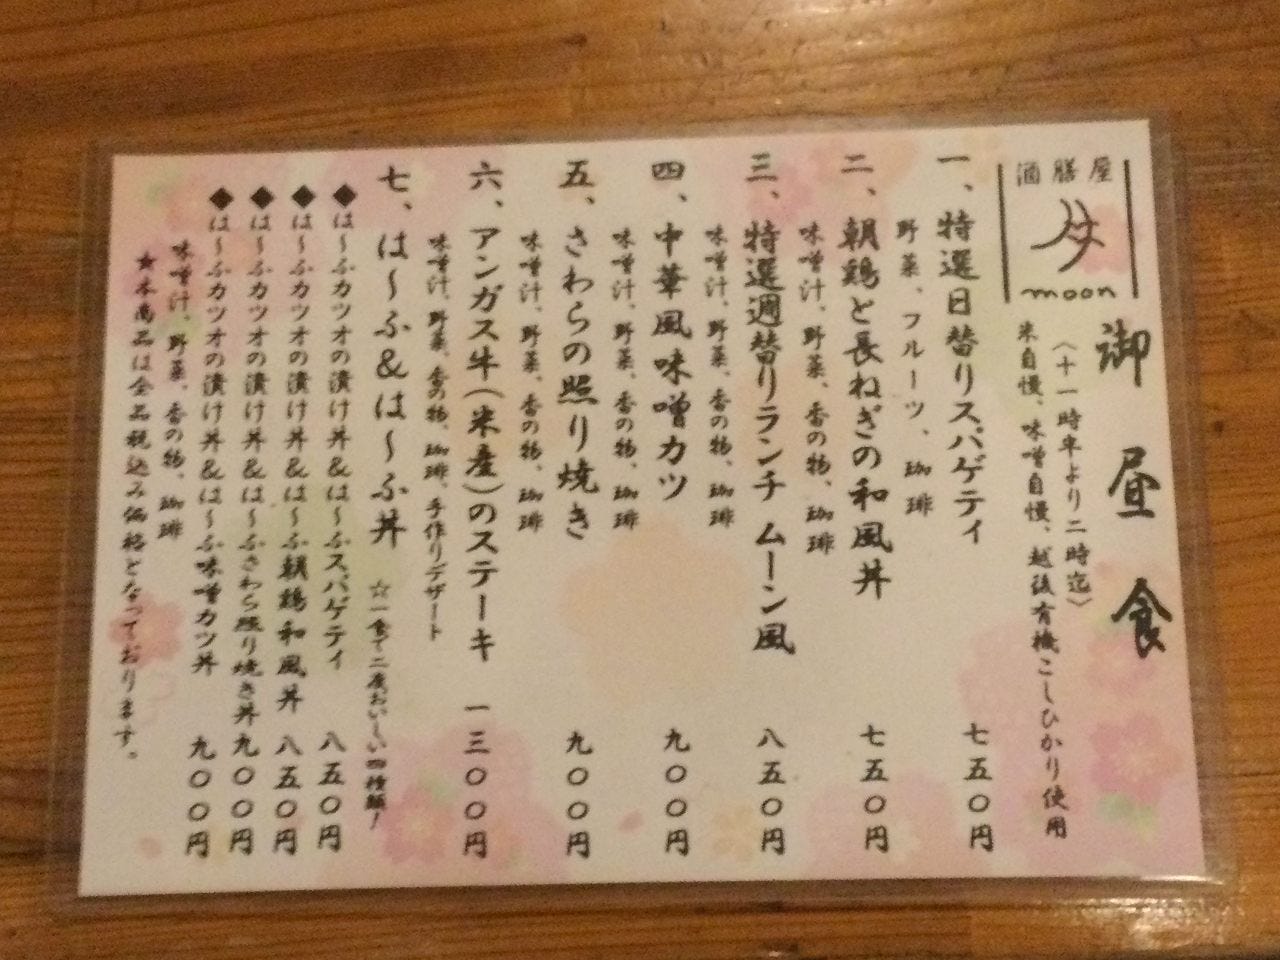 酒膳屋
moon
御昼食
(十一時半より二時迄)
米自慢、味噌自慢、越後有機こしひかり使用
一、特選日替りスパゲティ 七五〇円
野菜、フルーツ、珈琲
二、朝鶏と長ねぎの和風丼 七五〇円
味噌汁、野菜、香の物、珈琲
三、特選週替りランチ ムーン風 八五〇円
味噌汁、野菜、香の物、珈琲
四、中華風味噌カツ 九〇〇円
味噌汁、野菜、香の物、珈琲
五、さわらの照り焼き 九〇〇円
味噌汁、野菜、香の物、珈琲
六、アンガス牛(米産)のステーキ 一三〇〇円
味噌汁、野菜、香の物、珈琲、手作りデザート
七、は〜ふ&は〜ふ丼 ☆一食で二度おいし〜い四種類!
◆は〜ふカツオの漬け丼&は〜ふスパゲティ 八五〇円
◆は〜ふカツオの漬け丼&は〜ふ朝鶏和風丼 八五〇円
◆は〜ふカツオの漬け丼&は〜ふさわら照り焼き丼 九〇〇円
◆は〜ふカツオの漬け丼&は〜ふ味噌カツ丼 九〇〇円
味噌汁、野菜、香の物、珈琲
☆本商品は全品税込み価格となっております。